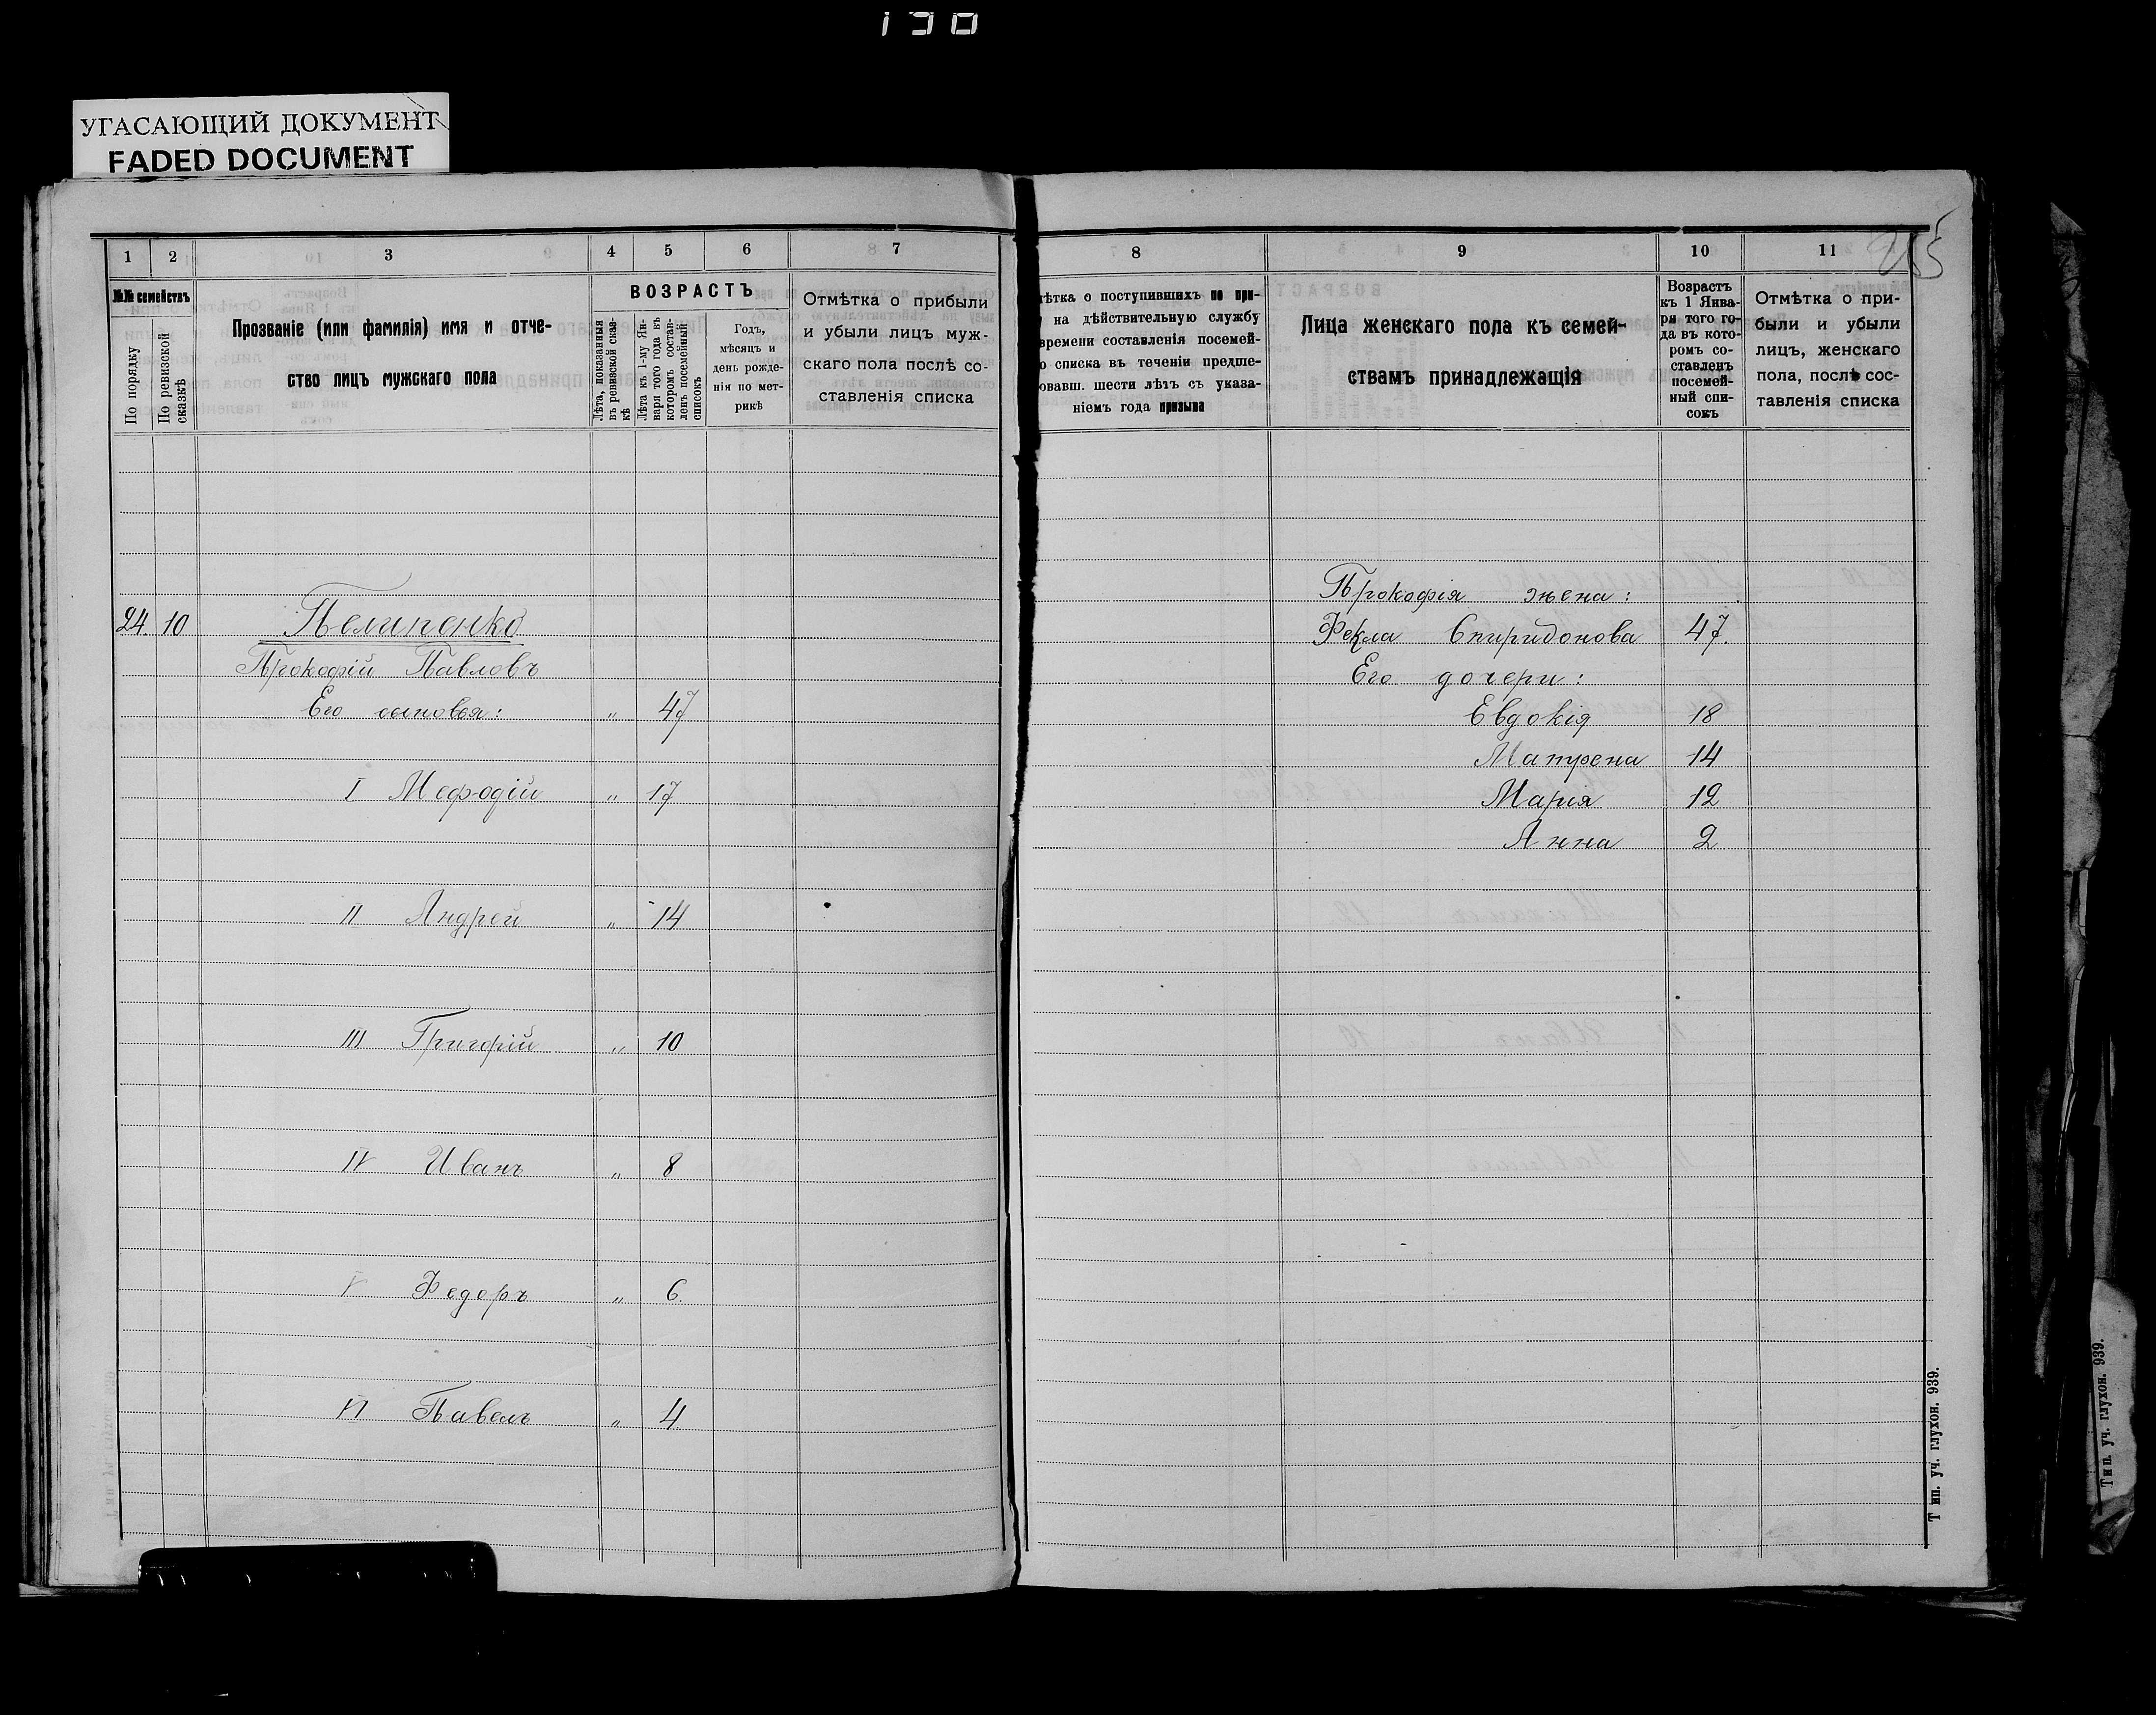 190
УГАСАЮЩИЙ ДОКУМЕНТ
FADED DOCUMENT
1 2 3 4 5 6 7
№№ семействъ
По порядку
По ревизской сказкѣ
Прозваніе (или фамилія) имя и отче-
ство лицъ мужскаго пола
ВОЗРАСТЪ
Лѣта, показанныя
въ ревизской сказ-
кѣ
Лѣта къ 1-му Ян-
варя того года въ
которомъ состав-
ленъ посемейный
списокъ
Годъ,
мѣсяцъ и
день рожде-
нія по мет-
рикѣ
Отмѣтка о прибыли
и убыли лицъ муж-
скаго пола послѣ со-
ставленія списка
24. 10 Пелипенко
Прокофій Павловъ
Его сыновья: „ 47
I Мефодій „ 17
II Андрей „ 14
III Григорій „ 10
IV Иванъ „ 8
V Федоръ „ 6.
VI Павелъ „ 4
8 9 10 11
ѣтка о поступившихъ по при-
на дѣйствительную службу
времени составленія посемей-
о списка въ теченіи предше-
овавш. шести лѣтъ съ указа-
ніемъ года призыва
Лица женскаго пола къ семей-
ствамъ принадлежащія
Возрастъ
къ 1 Янва-
ря того го-
да въ кото-
ромъ со-
ставленъ
посемей-
ный спи-
сокъ
Отмѣтка о при-
были и убыли
лицъ, женскаго
пола, послѣ сос-
тавленія списка
Прокофія жена:
Фекла Спиридонова 47.
Его дочери:
Евдокія 18
Матрена 14
Марія 12
Анна 2
Тип. уч. глухон. 939.
Тип. уч. глухон. 939.